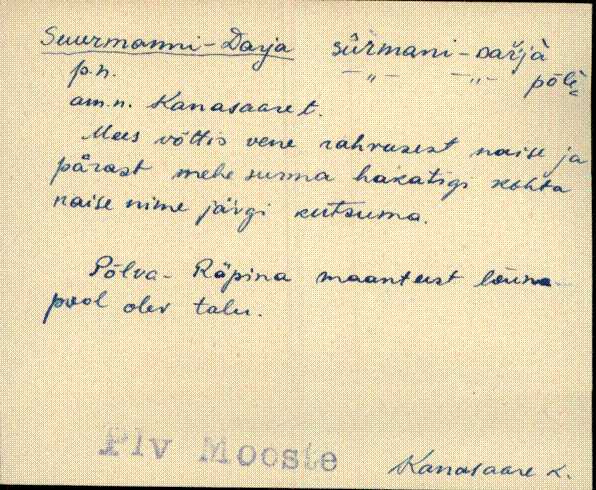 Suurmanni-Darja sūrmani-darjà
p.n. -„- -„- põlè
am.n. Kanasaare t.
Mees võttis vene rahvusest naise ja
pärast mehe surma hakatigi kohta
naise nime järgi kutsuma.
Põlva-Räpina maanteest lõuna
pool olev talu.
Plv Mooste
Kanasaare k.